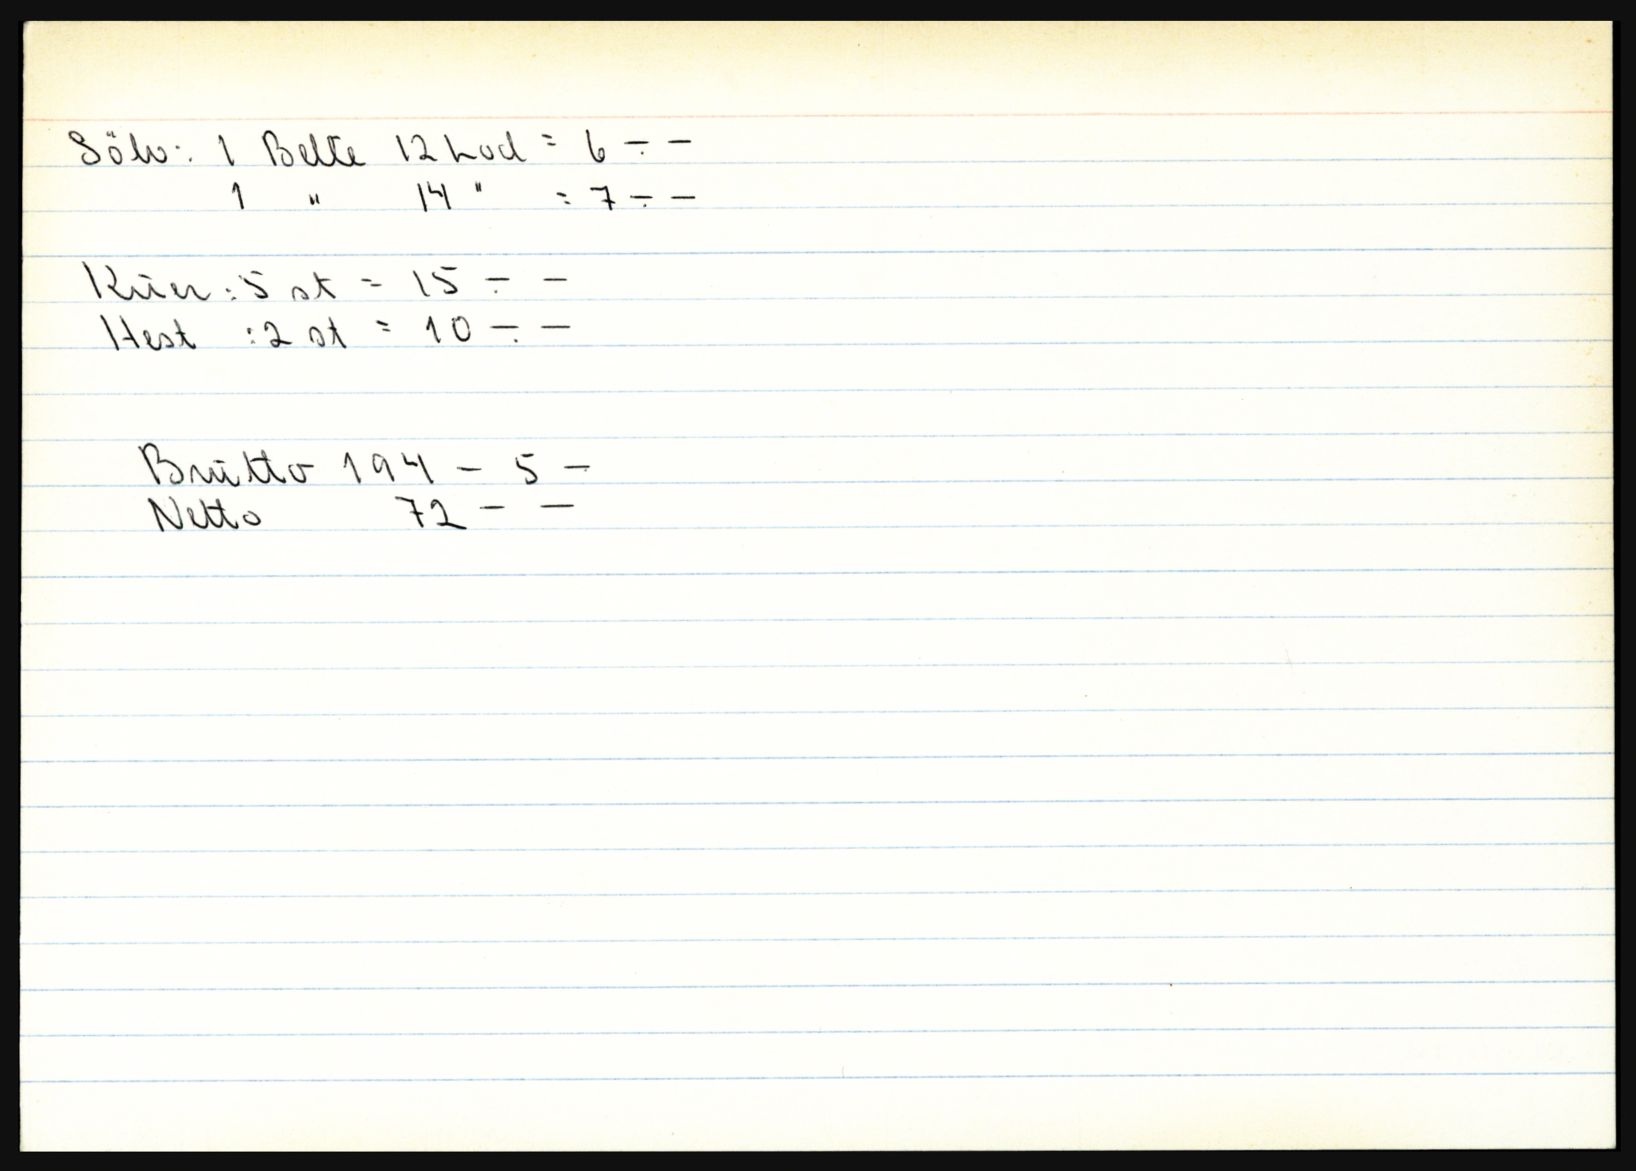 Sölv: 1 Belte 12 Lod = 6 - -
1 " 14 " = 7 - -
Küer: 5 st = 15 - -
Hest : 2 st = 10 - -
Brütto 194 - 5 -
Netto 72 - -